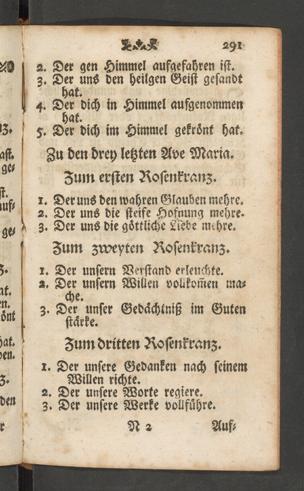 291
2. Der gen Himmel aufgefahren ist.
3. Der uns den heilgen Geist gesandt
hat.
4. Der dich in Himmel aufgenommen
hat.
5. Der dich im Himmel gekrönt hat.
Zu den drey letzten Ave Maria.
Zum ersten Rosenkranz.
1. Der uns den wahren Glauben mehre.
2. Der uns die steife Hofnung mehre.
3. Der uns die göttliche Liebe mehre.
Zum zweyten Rosenkranz.
1. Der unsern Verstand erleuchte.
2. Der unsern Willen vollkom̄en ma-
che.
3. Der unser Gedächtniß im Guten
stärke.
Zum dritten Rosenkranz.
1. Der unsere Gedanken nach seinem
Willen richte.
2. Der unsere Worte regiere.
3. Der unsere Werke vollführe.
N 2 Auf-